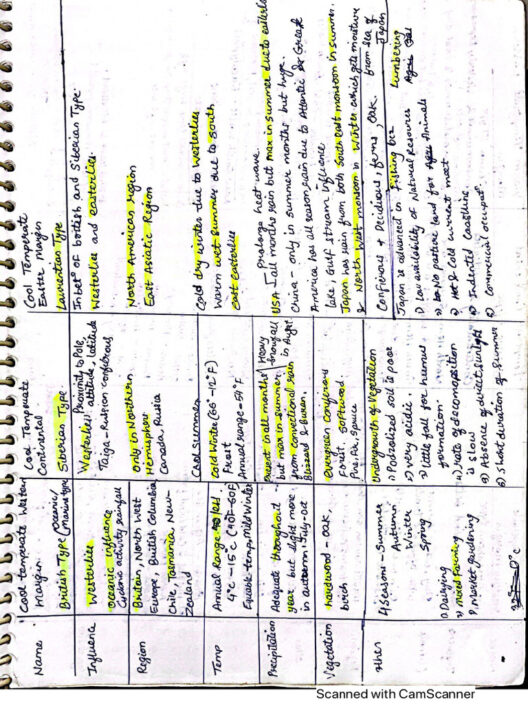 Name
Cool temperate Western
Margin.
British Type (oceanic/
marine type)
Cool Temperate
Continental
Siberian Type
Cool Temperate
Easter Margin
Laurentian Type
Influence
Westerlies
Oceanic influence
Cyclonic activity, rainfall
Proximity to Pole,
Westerlies, altitude, latitude
Taiga - Russian coniferous
Inbetn of british and Siberian Type.
Westerlies and easterlies.
Region
Britain, North West
Europe, British Columbia
Chile, Tasmania, New-
Zealand
Only in Northern
Hemisphere
Canada, Russia
North American region
East Asiatic Region
Temp
Annual Range
4°C -15°C (40F-60F
Equable temp, Mild Winter
Cool Summer
Cold Winter (60°-12°F)
Frost
Annual range-54°F
Cold dry winter due to westerlies
Warm wet summer due to south
east easterlies
Precipitation
Adequate throughout
year but slight more
in autumn, July-Oct
Present in all months
but max in summer
from convectional rain in August
Blizzard & buran.
Heavy
snowfall
Prolonge heat wave.
USA - all months rain but max in summer due to
China - only in summer months but huge.
America has all season rain due to Atlantic & Great
lake, Gulf stream influence
Japan has rain from both South east monsoon in summer.
& North West monsoon in winter which gets moisture
from sea of
Japan
Vegetation
hardwood - oak,
birch
Evergreen coniferous
Forest. Softwood
Pine, Fir, Spruce
Coniferous + Decidious, ferns, Oak.
Other
4 Seasons - Summer
Autumn
Winter
Spring
1) Dairying
2) Mixed Farming
3) Market gardening
Undergrowth of Vegetation
1) Podzolized soil is poor
2) very acidic.
3) Little fall for humus
formation.
4) rate of decomposition
is slow
5) Absence of direct sunlight
6) Short duration of summer
Japan is advanced in Fishing bcz
Lumbering
1) Low availability of Natural Resources
2) No pasture land for Animals
3) Hot & Cold current meet
4) Indented Coastline.
5) Commercial occupat
Scanned with CamScanner